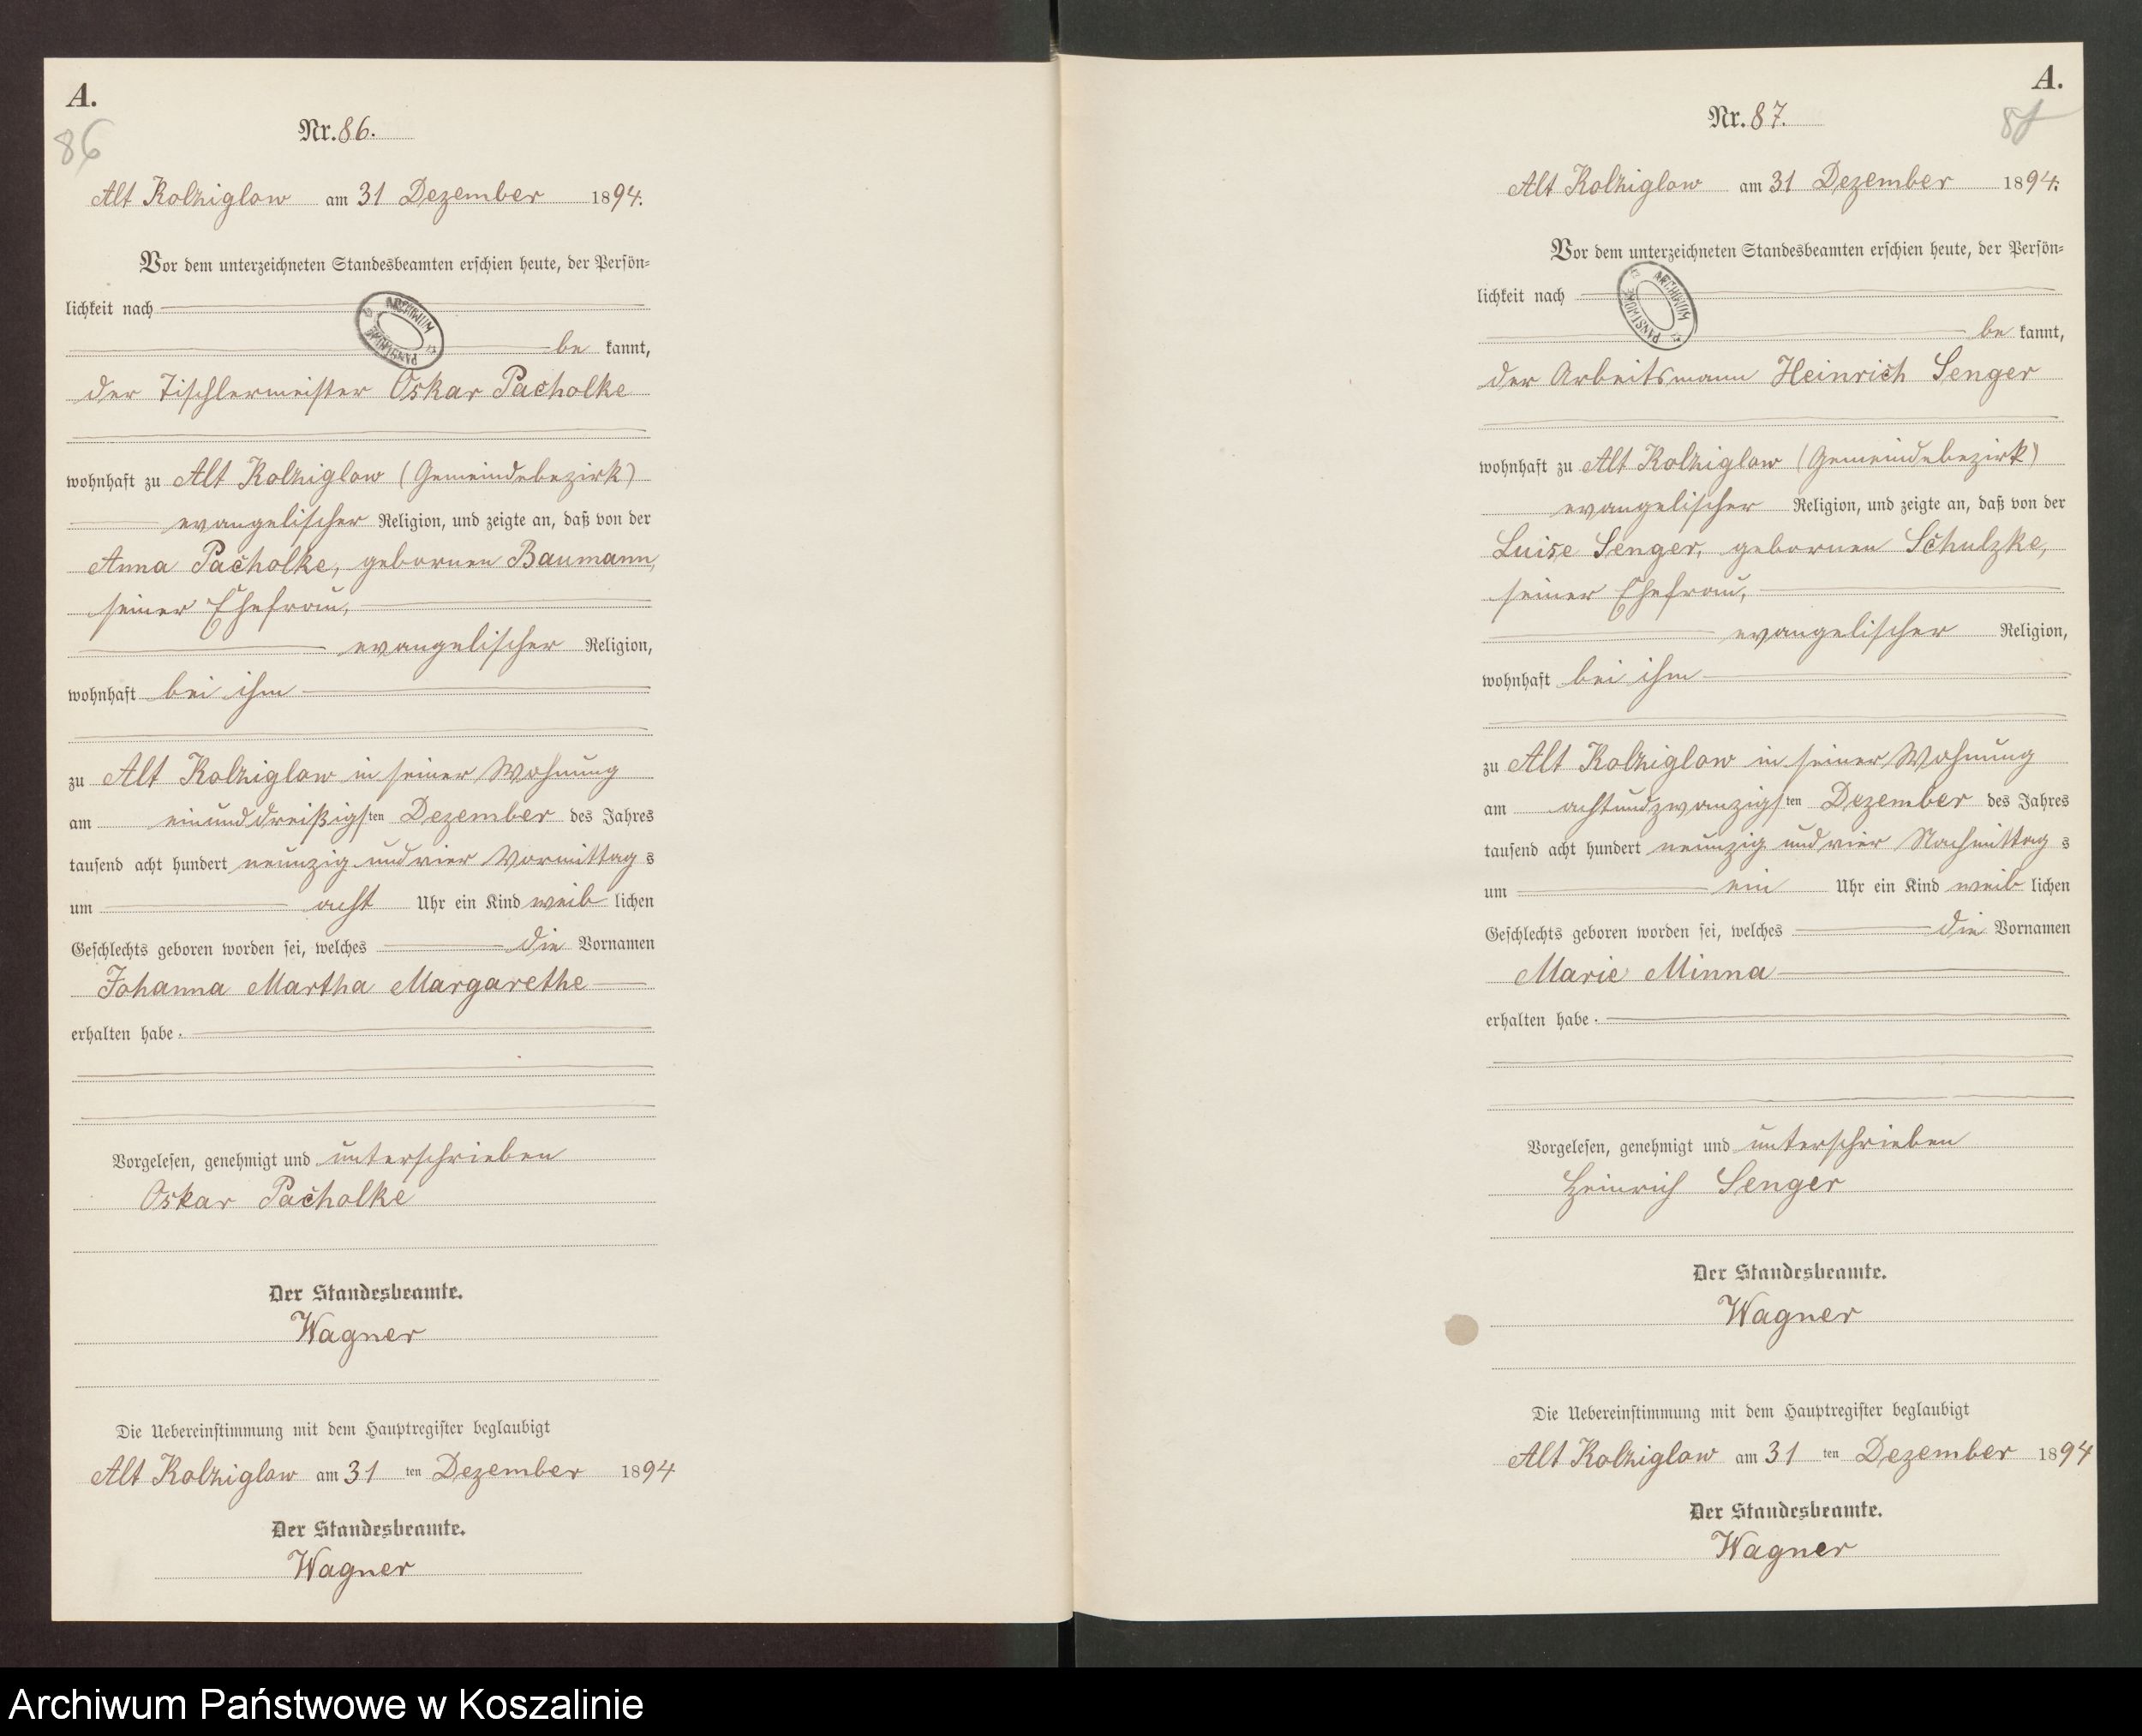 A.
86
Nr. 86.
Alt Kolziglow am 31 Dezember 1894.
Vor dem unterzeichneten Standesbeamten erschien heute, der Persön-
lichkeit nach
ARCHIWUM PAŃSTWOWE
be kannt,
der Tischlermeister Oskar Pacholke
wohnhaft zu Alt Kolziglow (Gemeindebezirk)
evangelischer Religion, und zeigte an, daß von der
Anna Pacholke, gebornen Baumann,
seiner Ehefrau,
evangelischer Religion,
wohnhaft bei ihm
zu Alt Kolziglow in seiner Wohnung
am einunddreißigsten Dezember des Jahres
tausend acht hundert neunzig und vier Vormittag s
um acht Uhr ein Kind weib lichen
Geschlechts geboren worden sei, welches die Vornamen
Johanna Martha Margarethe
erhalten habe.
Vorgelesen, genehmigt und unterschrieben
Oskar Pacholke
Der Standesbeamte.
Wagner
Die Uebereinstimmung mit dem Hauptregister beglaubigt
Alt Kolziglow am 31 ten Dezember 1894
Der Standesbeamte.
Wagner
A.
87
Nr. 87.
Alt Kolziglow am 31 Dezember 1894.
Vor dem unterzeichneten Standesbeamten erschien heute, der Persön-
lichkeit nach
ARCHIWUM PAŃSTWOWE
be kannt,
der Arbeitsmann Heinrich Senger
wohnhaft zu Alt Kolziglow (Gemeindebezirk)
evangelischer Religion, und zeigte an, daß von der
Luise Senger, gebornen Schulzke,
seiner Ehefrau,
evangelischer Religion,
wohnhaft bei ihm
zu Alt Kolziglow in seiner Wohnung
am achtundzwanzigsten Dezember des Jahres
tausend acht hundert neunzig und vier Nachmittag s
um ein Uhr ein Kind weib lichen
Geschlechts geboren worden sei, welches die Vornamen
Marie Minna
erhalten habe.
Vorgelesen, genehmigt und unterschrieben
Heinrich Senger
Der Standesbeamte.
Wagner
Die Uebereinstimmung mit dem Hauptregister beglaubigt
Alt Kolziglow am 31 ten Dezember 1894
Der Standesbeamte.
Wagner
Archiwum Państwowe w Koszalinie